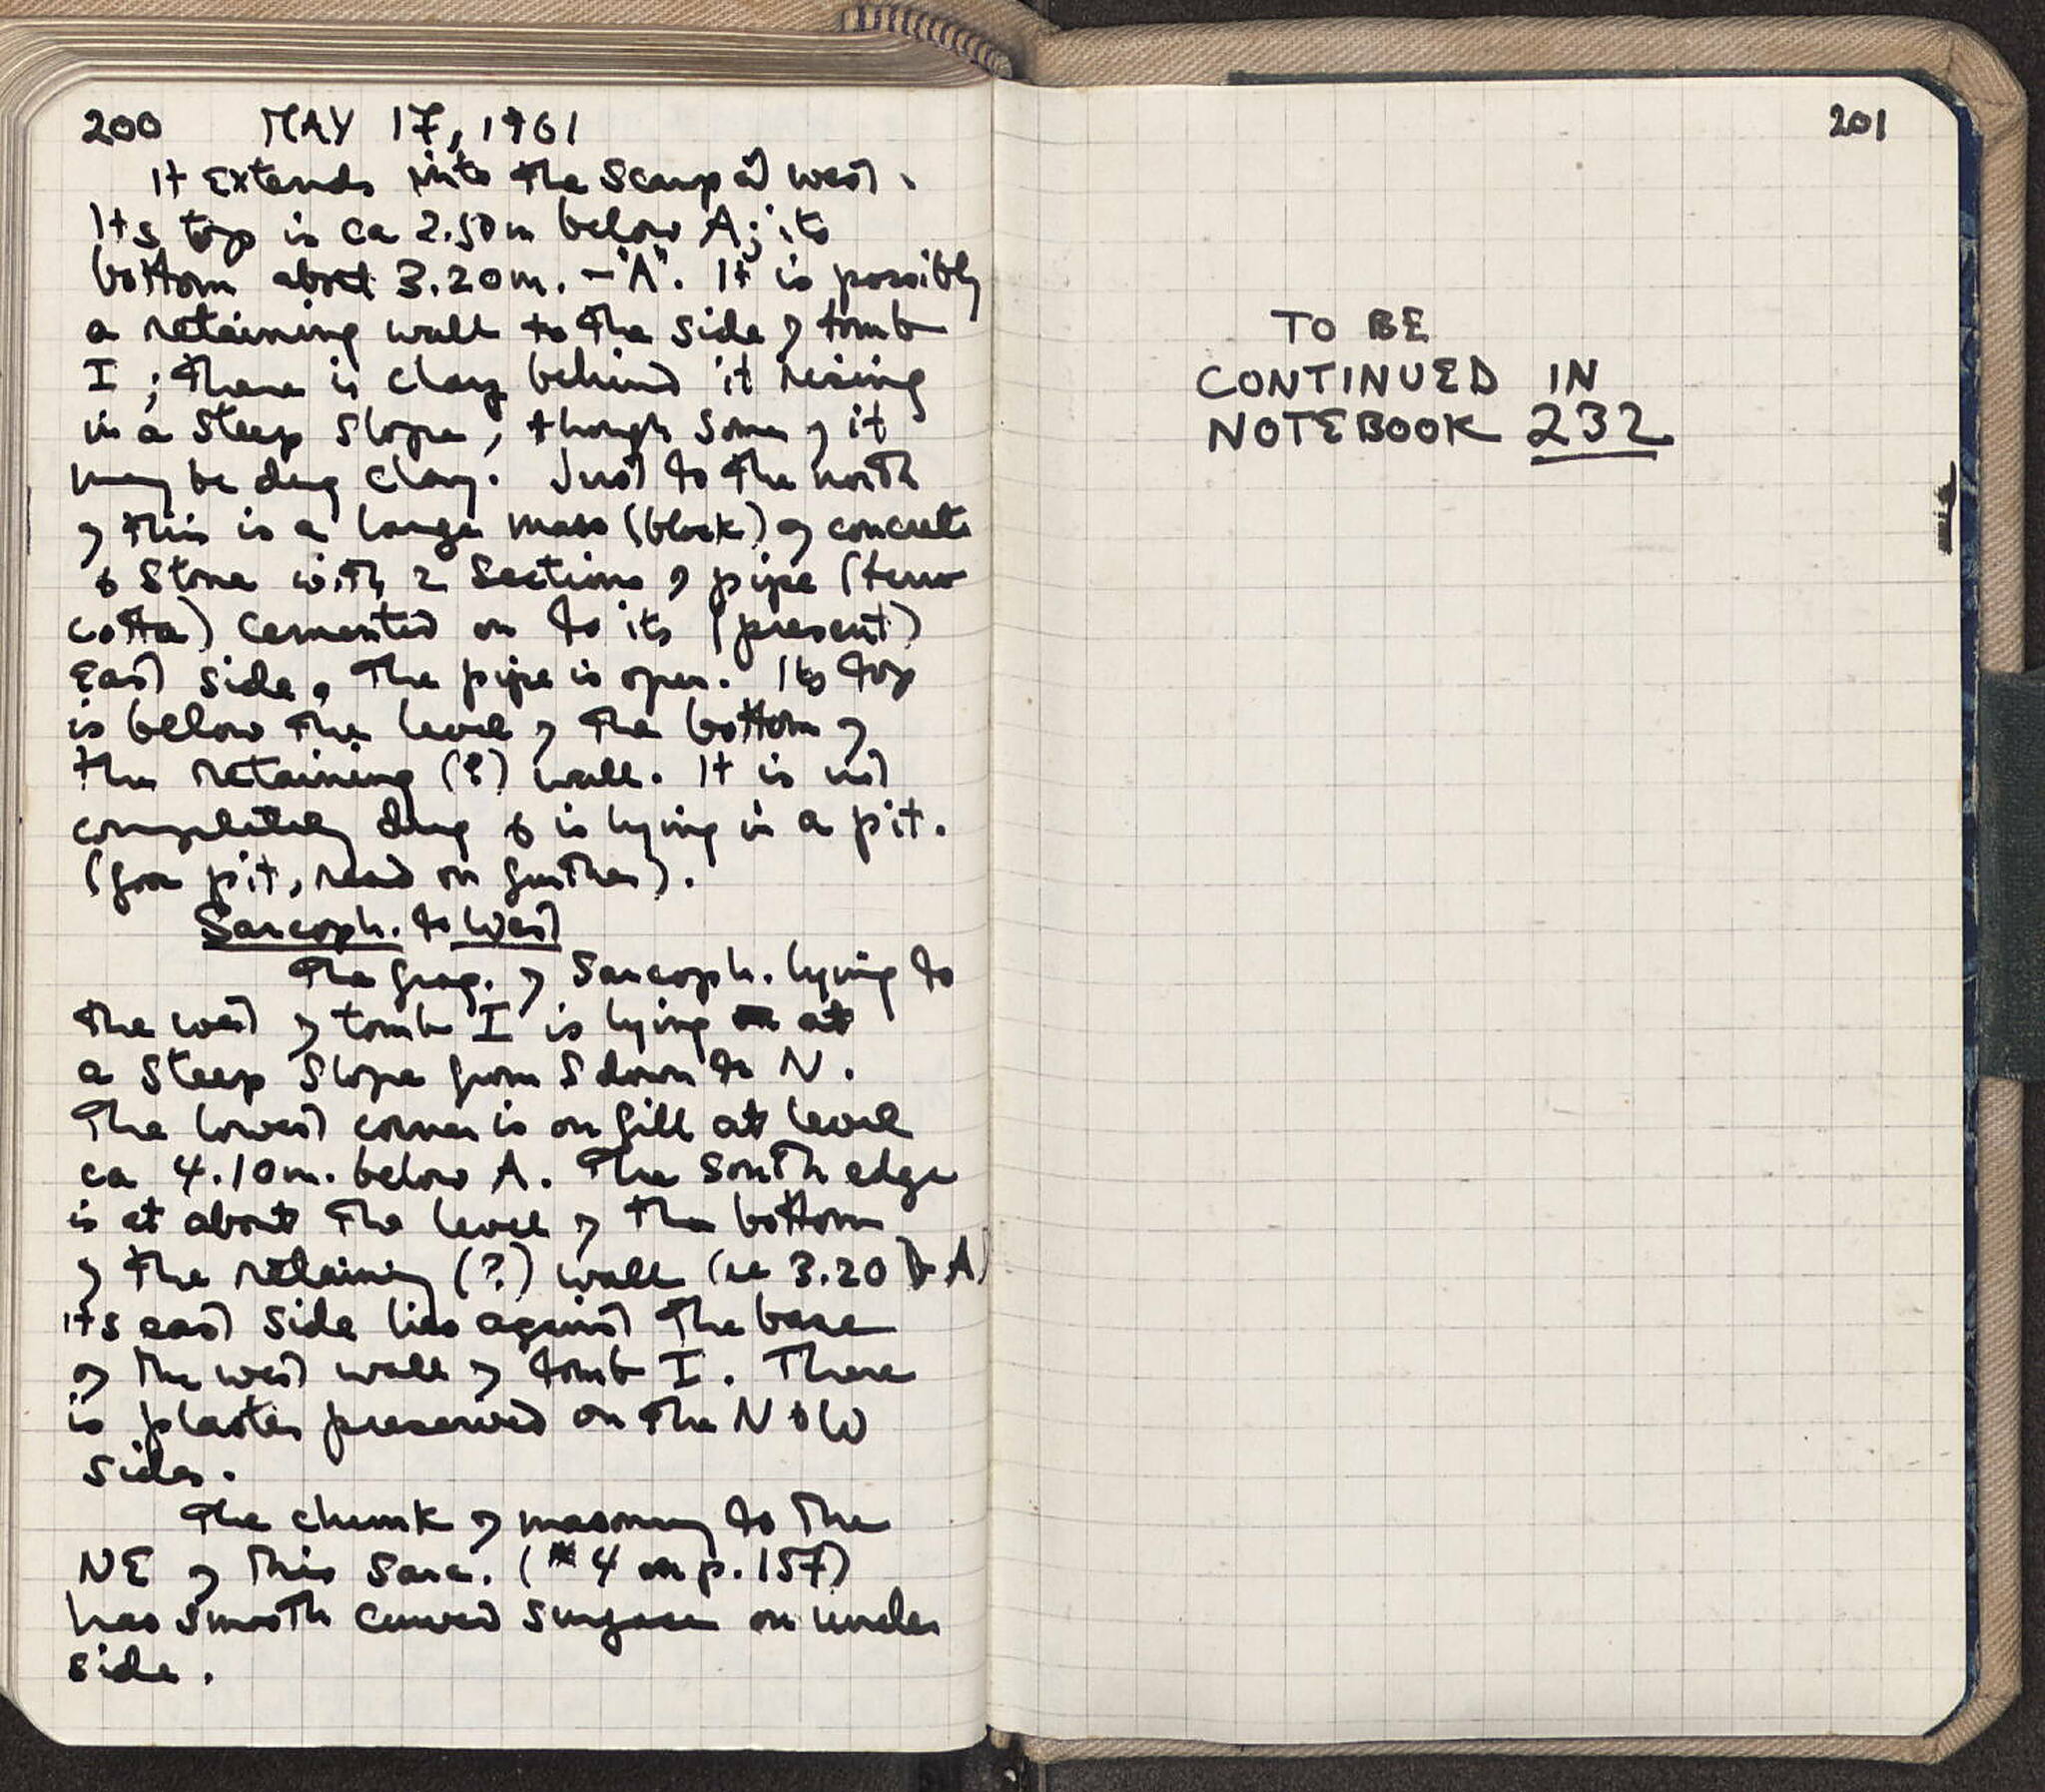 200 MAY 17, 1961
It extends into the scarp at west.
Its top is ca 2.50m below A; its
bottom about 3.20m. -"A". It is possibly
a retaining wall to the side of tomb
I; there is clay behind it rising
in a steep slope, though some of it
may be dug clay. Just to the north
of this is a large mass (block) of concrete
& stone with 2 sections of pipe (terra
cotta) cemented on to its (present)
East side. The pipe is open. Its top
is below the level of the bottom of
the retaining (?) wall. It is not
completely dug & is lying in a pit.
(for pit, read on further).
Sarcoph. to West
The frag. of Sarcoph. lying to
the west of tomb I is lying at
a steep slope from S down to N.
The lowest corner is on fill at level
ca 4.10m. below A. The south edge
is at about the level of the bottom
of the retaining (?) wall (ca 3.20 - A)
its east side lies against the base
of the west wall of tomb I. There
is plaster preserved on the N & W
sides.
The chunk of masonry to the
NE of this sarc. (#4 on p. 157)
has smooth curved surface on under
side.
201
TO BE
CONTINUED IN
NOTEBOOK 232